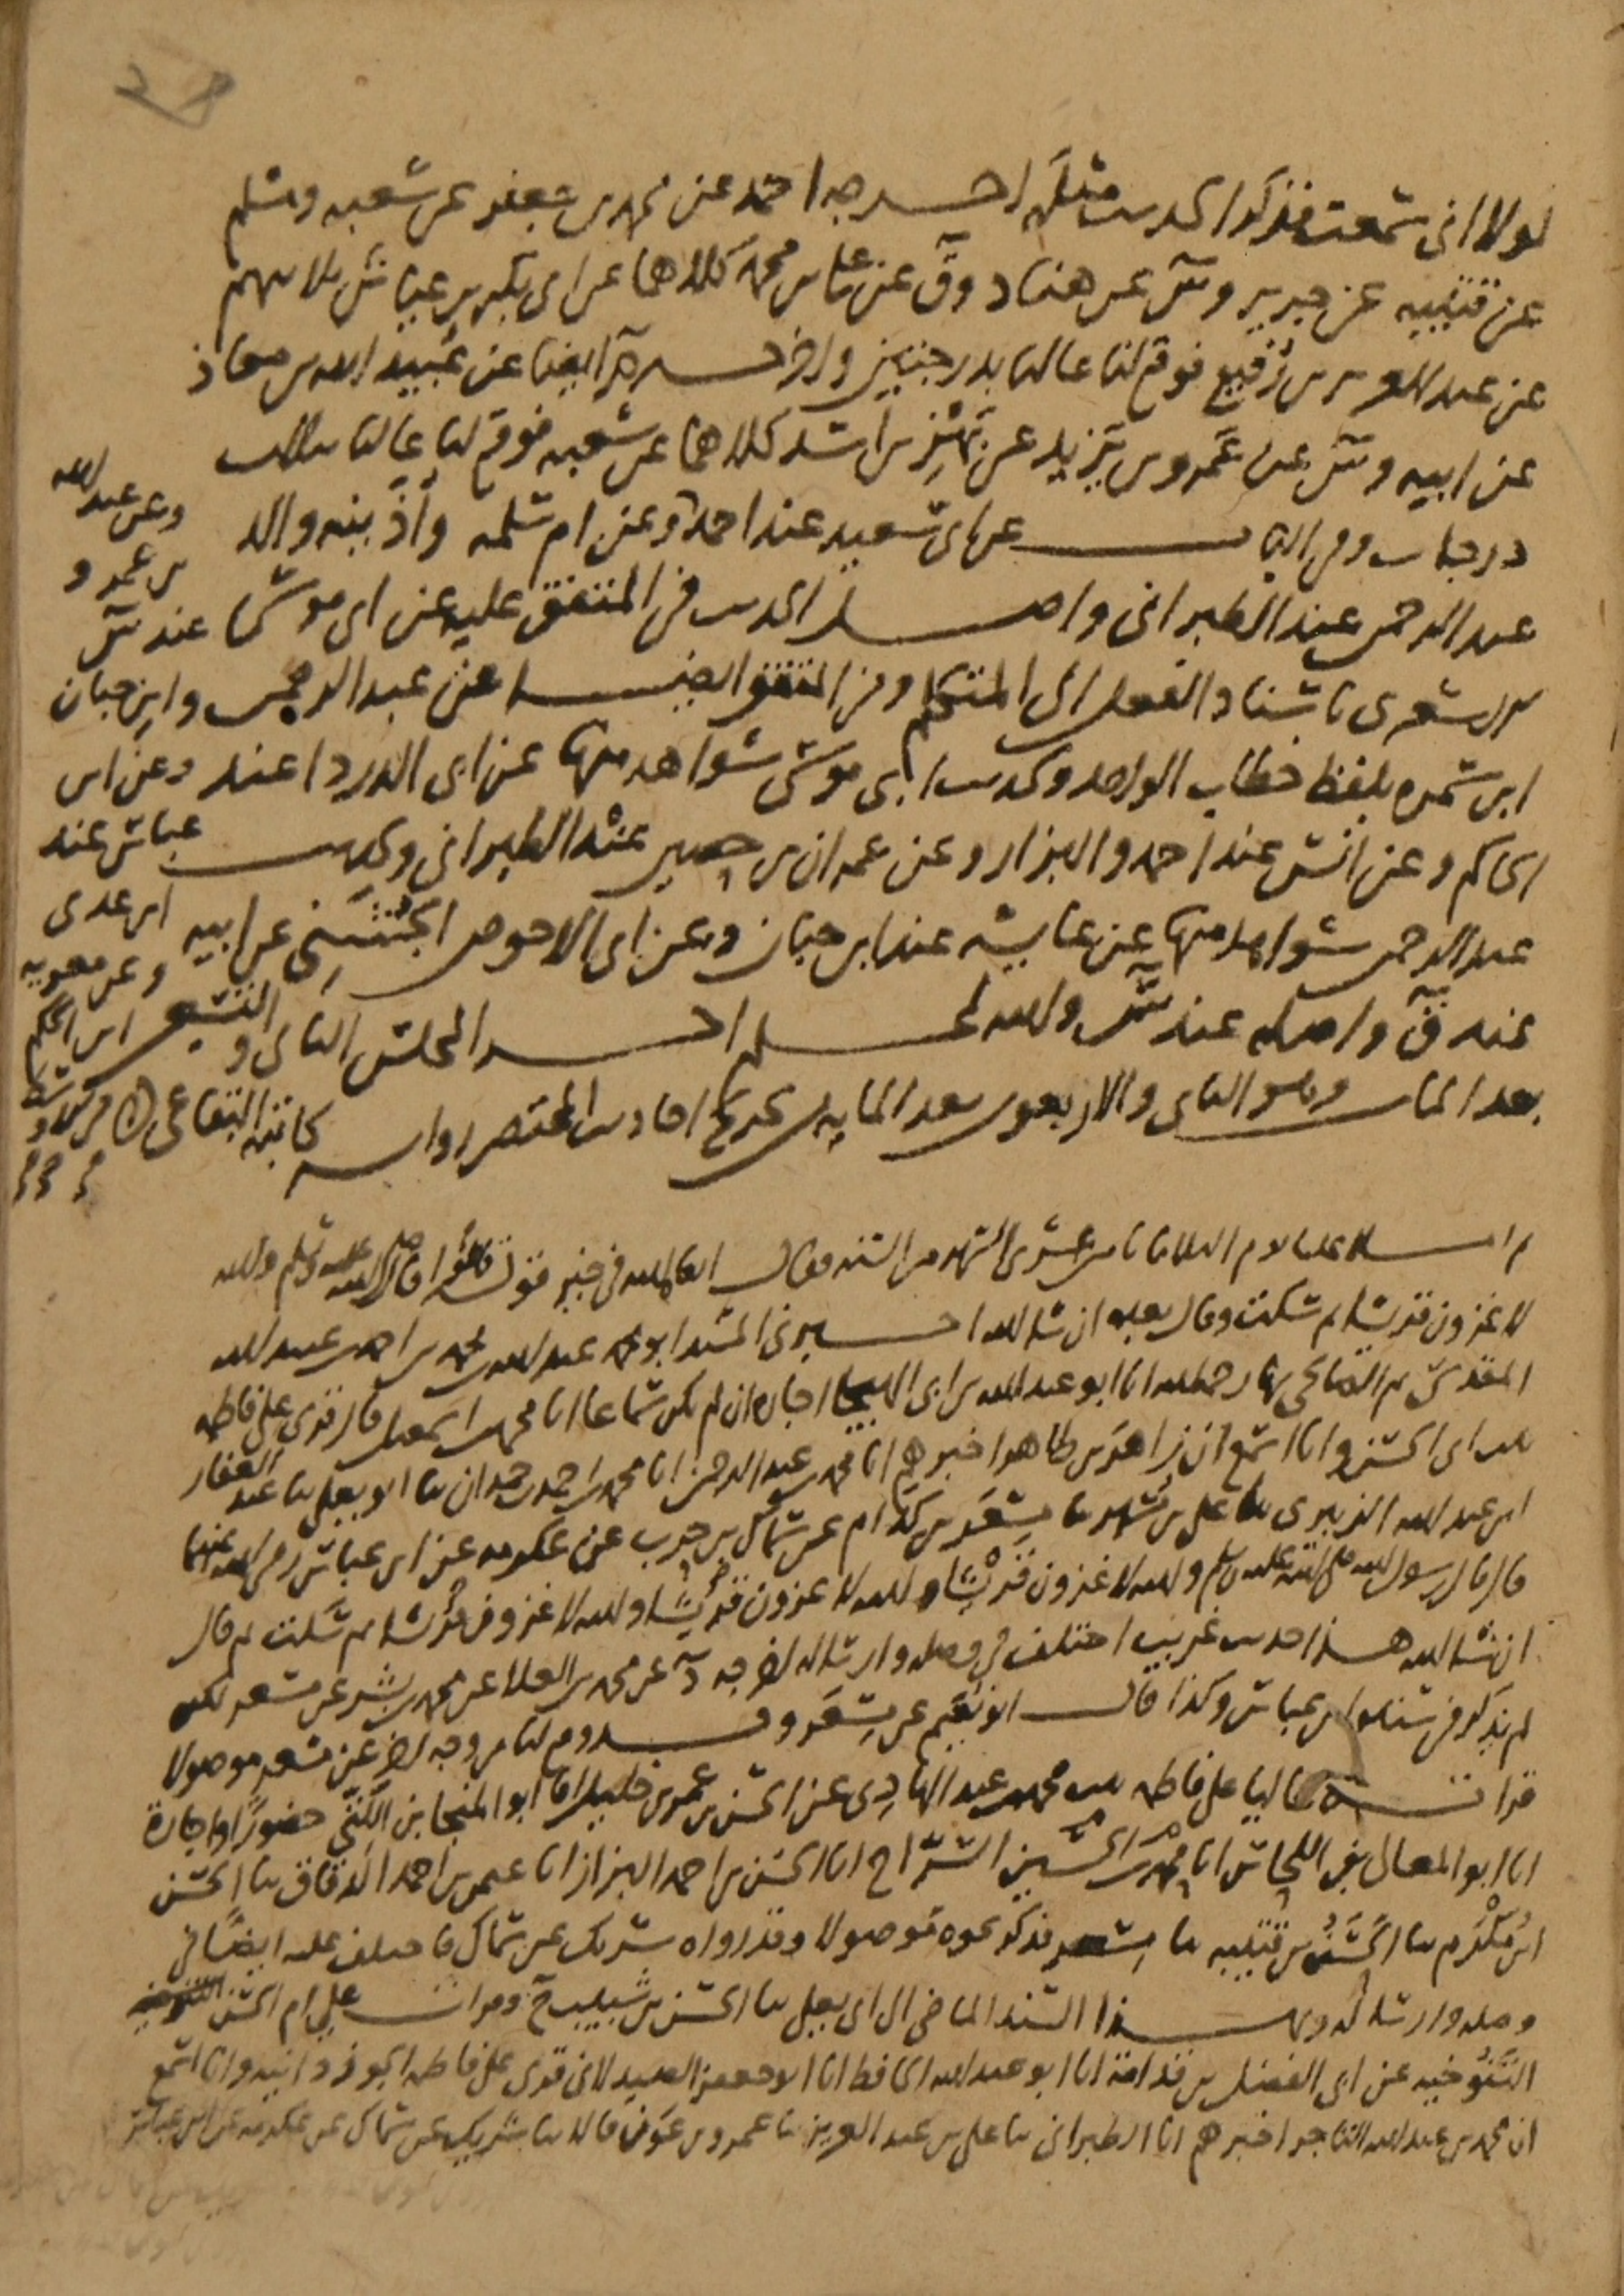 لولا اني سمعت فذكر الحديث مثله اخرجه احمد عن محمد بن جعفر عن شعبه ومسلم
عن قتيبه عن جرير وس عن هناد وق عن علي بن محمد كلاهما عن ابي بكر بن عياش ثلاثتهم
عن عبد العزيز بن رفيع فوقع لنا عاليا بدرجتين واخرجه م ايضا عن عبيد الله بن معاذ
عن ابيه وس عن عمرو بن يزيد عن بهز بن اسد كلاهما عن شعبه فوقع لنا عاليا بثلاث
درجات وفي الباب عن ابي سعيد عند احمد وعن ام سلمه وأذينه والد
وعن عبد الله بن عمرو
عبد الرحمن عند الطبراني واصل الحديث في المتفق عليه عن ابي موسى عند س
الاشعري باسناد الفعل الى المتكلم وفي المتفق ايضا عن عبد الرحمن وابن حبان
ابن سمره بلفظ خطاب الواحد ولحديث ابي موسى شواهد منها عن ابي الدردا عند وعن ابن
عباس عند
الحاكم وعن انس عند احمد والبزار وعن عمران بن حصين عند الطبراني ولحديث
ابن عدي
عبد الرحمن شواهد منها عن عايشه عند ابن حبان وعن ابي الاحوص الجشمي عن ابيه
وعن معويه ابن الحكم
عند ق واصله عند س والله اعلم اخر المجلس الثاني و التسعين
بعد المايه وهو الثاني والاربعون بعد المايه من تخريج احاديث المختصر روايه
كاتبه البقاعي
ثم املا علينا يوم الثلاثا ثامن عشري الشهر من السنه فقال
لاغزون قريشا ثم سكت وقال بعده ان شا الله اخبرني المسند ابو محمد عبد الله بن محمد بن احمد بن عبيد الله
المقدسي ثم الصالحي بها رحمه الله انا ابو عبد الله بن ابي الهيجا اجازه ان لم يكن سماعا انا محمد بن اسمعيل قال قري على فاطمه
بنت ابي الحسن وانا اسمع ان زاهر بن طاهر اخبرهم انا محمد بن عبد الرحمن انا محمد بن احمد بن حمدان ثنا ابو يعلى ثنا عبد الغفار
ابن عبد الله الزبيري ثنا علي بن مسهر ثنا مسعر بن كدام عن سماك بن حرب عن عكرمه عن ابن عباس رضي الله عنهما
قال قال رسول الله صلى الله عليه وسلم والله لاغزون قريشا والله لاغزون قريشا والله لاغزون قريشا ثم سكت ثم قال
ان شا الله هذا حديث غريب اختلف في وصله وارساله اخرجه د عن محمد بن العلا عن محمد بن بشر عن مسعر لكن
لم يذكر في سنده ابن عباس وكذا قال ابو نعيم عن مسعر وقد وقع لنا من وجه اخر عن مسعر موصولا
قراته عاليا على فاطمه بنت محمد بن عبد الهادي عن الحسن بن عمر بن خليل انا ابو المنجا بن اللتي حضورا واجازة
انا ابو المعالي بن اللحاس انا محمد بن الحسين السراج انا الحسن بن احمد البزاز انا عثمن بن احمد الدقاق ثنا الحسن
ابن مكرم ثنا الحسن بن قتيبه ثنا مسعر فذكر نحوه موصولا وقد رواه شريك عن سماك فاختلف عليه ايضا في
وصله وارساله وبهذا السند الماضي الى ابي يعلى ثنا الحسن بن شبيب ح وقرات على ام الحسن التنوخيه
التنوخيه عن ابي الفضل بن قدامة انا ابو عبد الله الحافظ انا ابو جعفر الصيدلاني قري على فاطمه الجوزدانيه وانا اسمع
ان محمد بن عبد الله التاجر اخبرهم انا الطبراني ثنا علي بن عبد العزيز ثنا عمرو بن عون قالا ثنا شريك عن سماك عن عكرمه عن ابن عباس